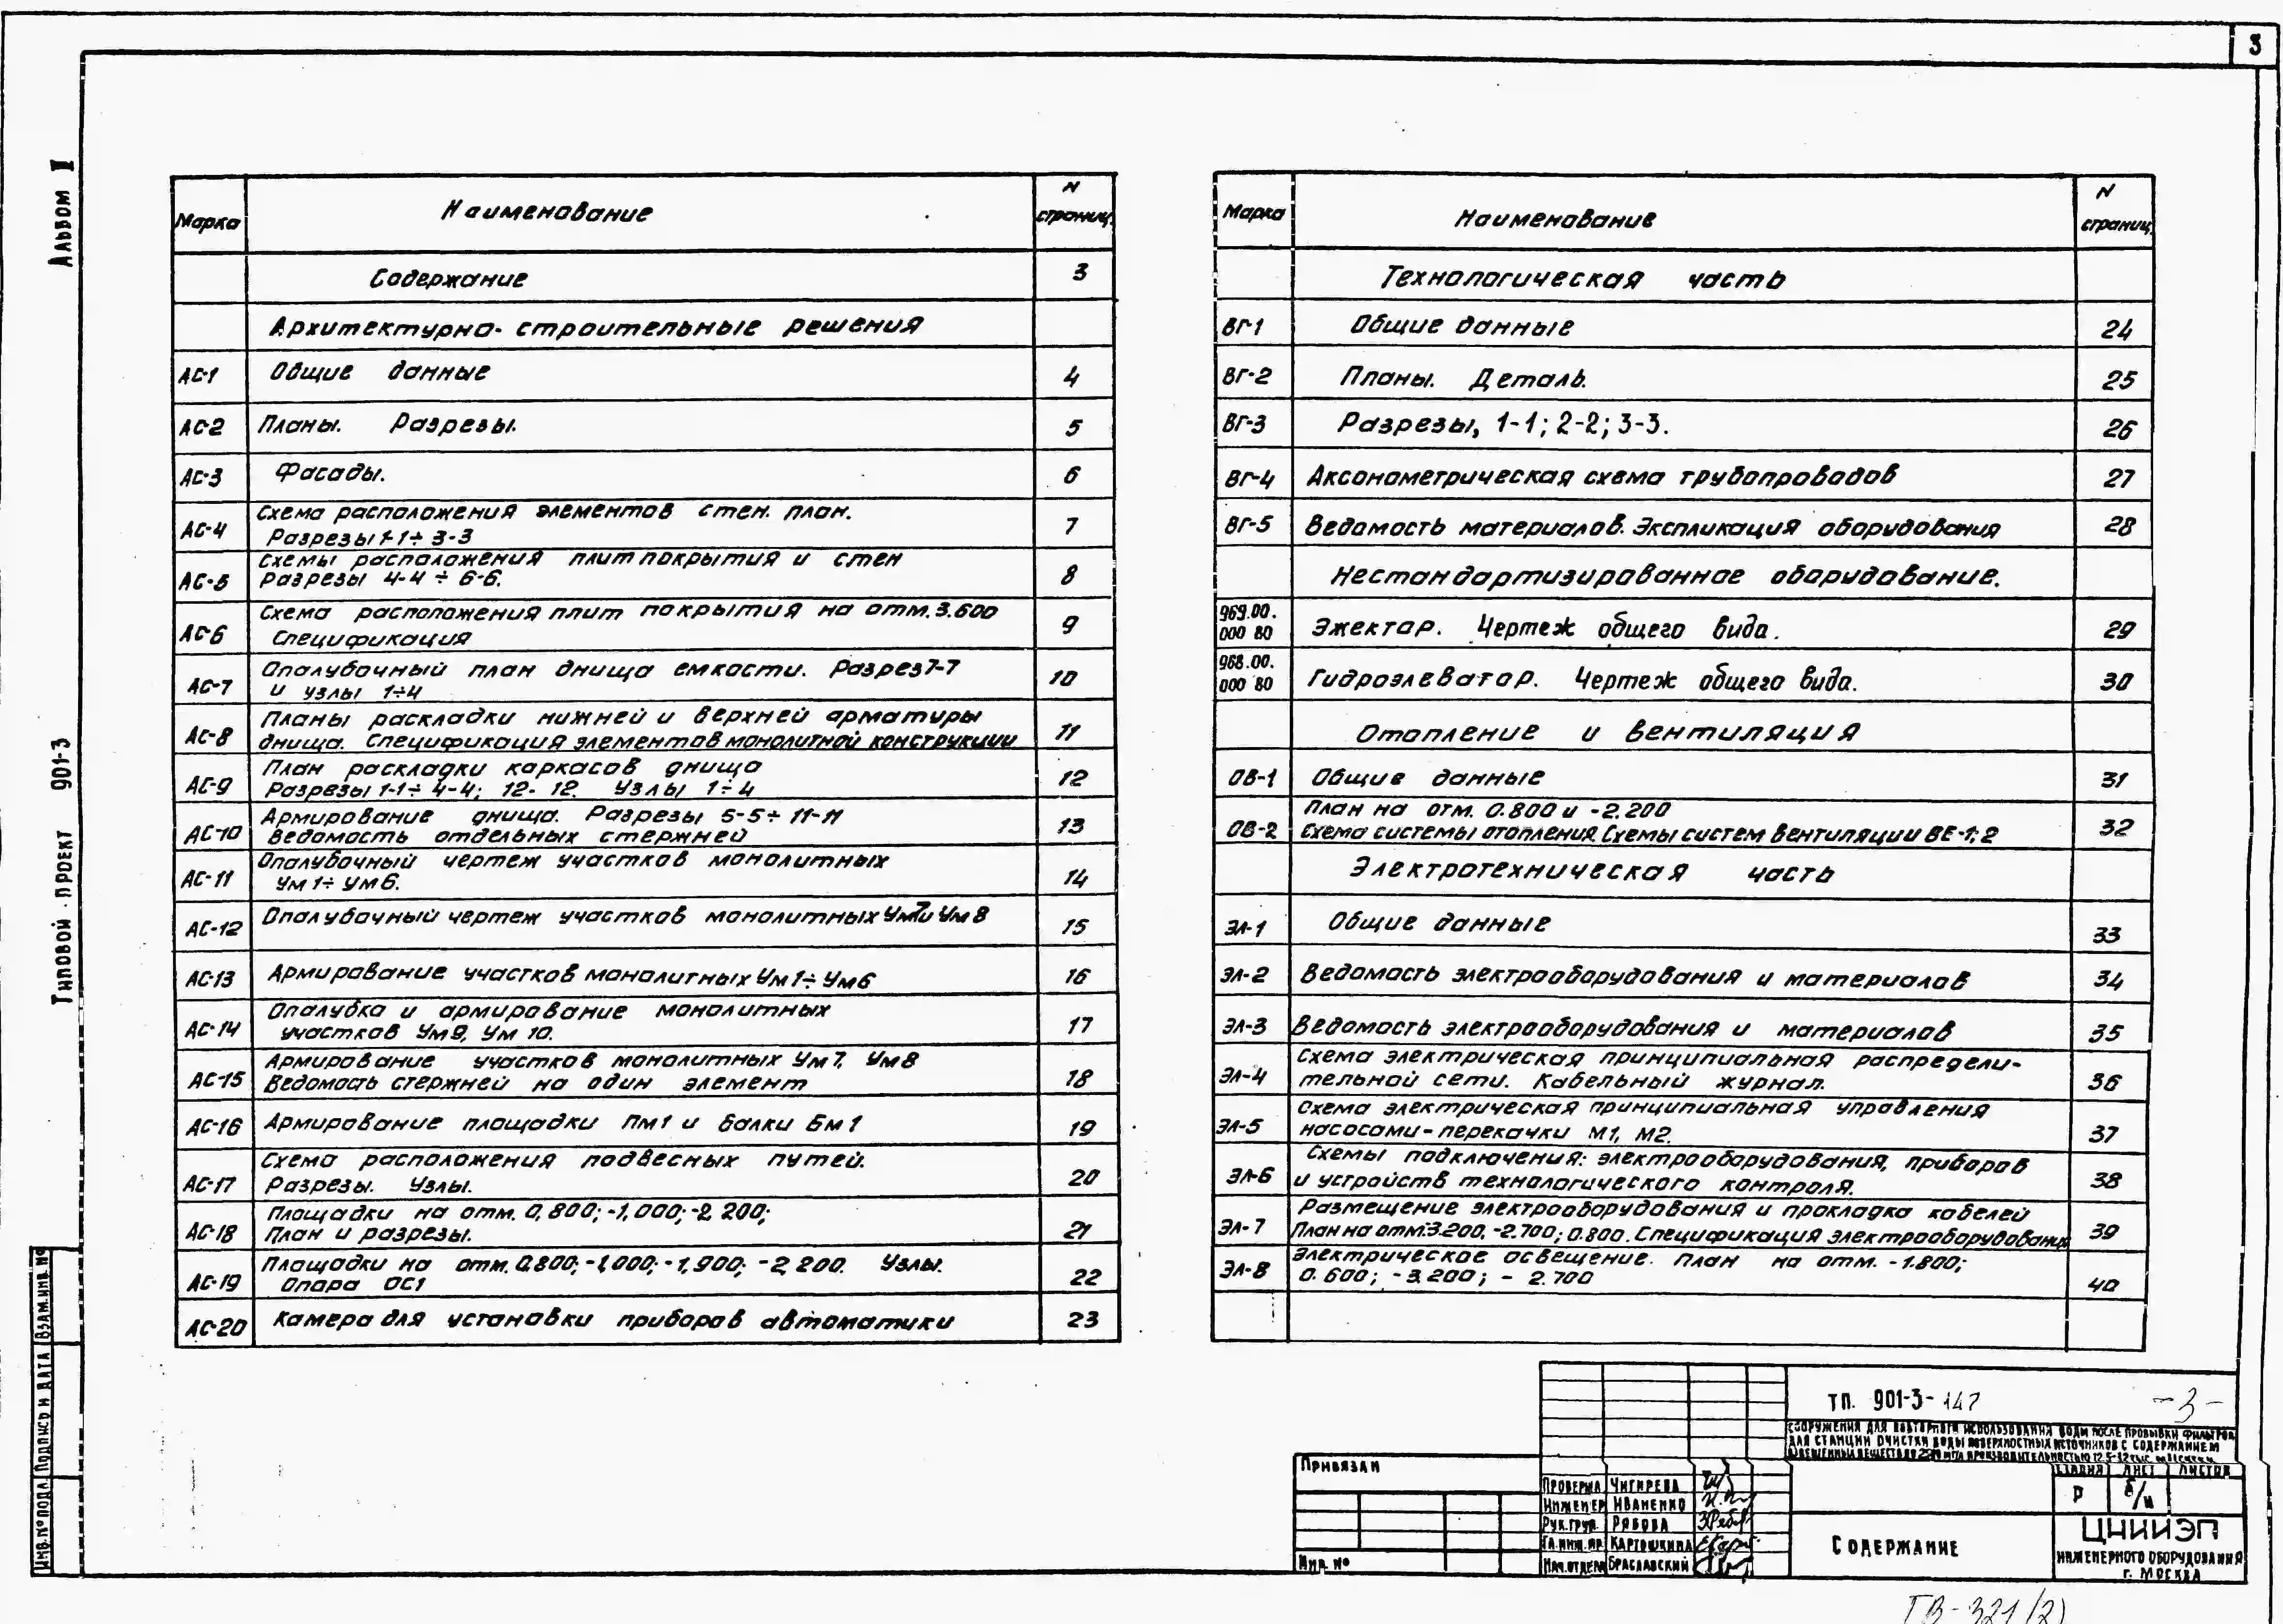 3
Альбом II
Типовой проект 901-3
Марка Наименование N страниц.
Содержание 3
Архитектурно-строительные решения
АС-1 Общие данные 4
АС-2 Планы. Разрезы. 5
АС-3 Фасады. 6
АС-4 Схема расположения элементов стен. план. 7
Разрезы 1-1÷3-3
АС-5 Схемы расположения плит покрытия и стен 8
Разрезы 4-4÷6-6.
АС-6 Схема расположения плит покрытия на отм. 3.600 9
Спецификация
АС-7 Опалубочный план днища емкости. Разрез 7-7 10
и узлы 1÷4
АС-8 Планы раскладки нижней и верхней арматуры 11
днища. Спецификация элементов монолитной конструкции
АС-9 План раскладки каркасов днища 12
Разрезы 1-1÷4-4; 12-12. Узлы 1÷4
АС-10 Армирование днища. Разрезы 5-5÷11-11 13
Ведомость отдельных стержней
АС-11 Опалубочный чертеж участков монолитных 14
Ум1÷Ум6.
АС-12 Опалубочный чертеж участков монолитных Ум7и Ум8 15
АС-13 Армирование участков монолитных Ум1÷Ум6 16
АС-14 Опалубка и армирование монолитных 17
участков Ум9, Ум 10.
АС-15 Армирование участков монолитных Ум7, Ум8 18
Ведомость стержней на один элемент
АС-16 Армирование площадки Пм1 и балки Бм1 19
АС-17 Схема расположения подвесных путей. 20
Разрезы. Узлы.
АС-18 Площадки на отм. 0,800; -1,000; -2,200; 21
План и разрезы.
АС-19 Площадки на отм. 0,800; -1,000; -1,900; -2,200. Узлы. 22
Опора ОС1
АС-20 Камера для установки приборов автоматики 23
Марка Наименование N страниц.
Технологическая часть
ВГ-1 Общие данные 24
ВГ-2 Планы. Деталь. 25
ВГ-3 Разрезы, 1-1; 2-2; 3-3. 26
ВГ-4 Аксонометрическая схема трубопроводов 27
ВГ-5 Ведомость материалов. Экспликация оборудования 28
Нестандартизированное оборудование.
969.00.
000 ВО Эжектор. Чертеж общего вида. 29
968.00.
000 ВО Гидроэлеватор. Чертеж общего вида. 30
Отопление и вентиляция
ОВ-1 Общие данные 31
ОВ-2 План на отм. 0.800 и -2.200 32
Схема системы отопления. Схемы систем вентиляции ВЕ-1; 2
Электротехническая часть
ЭЛ-1 Общие данные 33
ЭЛ-2 Ведомость электрооборудования и материалов 34
ЭЛ-3 Ведомость электрооборудования и материалов 35
ЭЛ-4 Схема электрическая принципиальная распредели- 36
тельной сети. Кабельный журнал.
ЭЛ-5 Схема электрическая принципиальная управления 37
насосами-перекачки М1, М2.
ЭЛ-6 Схемы подключения: электрооборудования, приборов 38
и устройств технологического контроля.
ЭЛ-7 Размещение электрооборудования и прокладка кабелей 39
План на отм.-3.200, -2.700; 0.800. Спецификация электрооборудования
ЭЛ-8 Электрическое освещение. План на отм. -1.800; 40
0.600; -3.200; -2.700
Инв.№подл. Подпись и дата Взам.инв.№
ТП. 901-3-147 -3-
Сооружения для повторного использования воды после промывки фильтров
для станции очистки воды поверхностных источников с содержанием
Привязан
Инв. №
Проверил Чигирева
Инженер Иваненко
Рук.груп. Рябова
Гл.инж.пр. Картошкина
Нач.отдела Браславский
Стадия Лист Листов
Р б/н
Содержание
ЦНИИЭП
инженерного оборудования
г. Москва
ТВ-321(2)